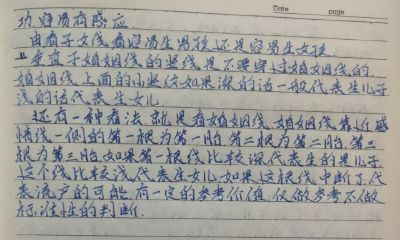 Date page
功,容易有感应.
由看子女线看容易生男孩还是容易生女孩
垂直于婚姻线的竖线是不要穿过婚姻线的,
婚姻线上面的小竖纹如果深的话一般代表生儿子
浅的话代表生女儿
还有一种看法就是看婚姻线,婚姻线靠近感
情线一侧的第一根为第一胎第二根为第二胎.第三
根为第三胎.如果第一根线比较深代表生的是儿子
这个线比较浅,代表生女儿,如果这根线中断了代
表流产的可能.有一定的参考价值,仅做参考不做
标准性的判断.